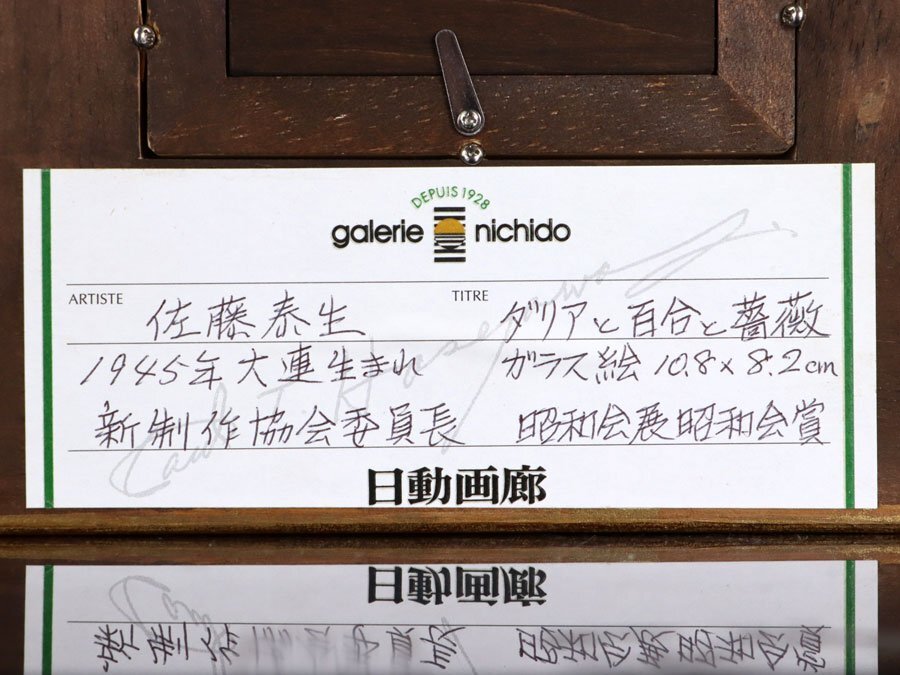 DEPUIS 1928
galerie nichido
ARTISTE 佐藤泰生 TITRE ダリアと百合と薔薇
1945年大連生まれ ガラス絵 10.8×8.2cm
新制作協会委員長 昭和会展昭和会賞
日動画廊